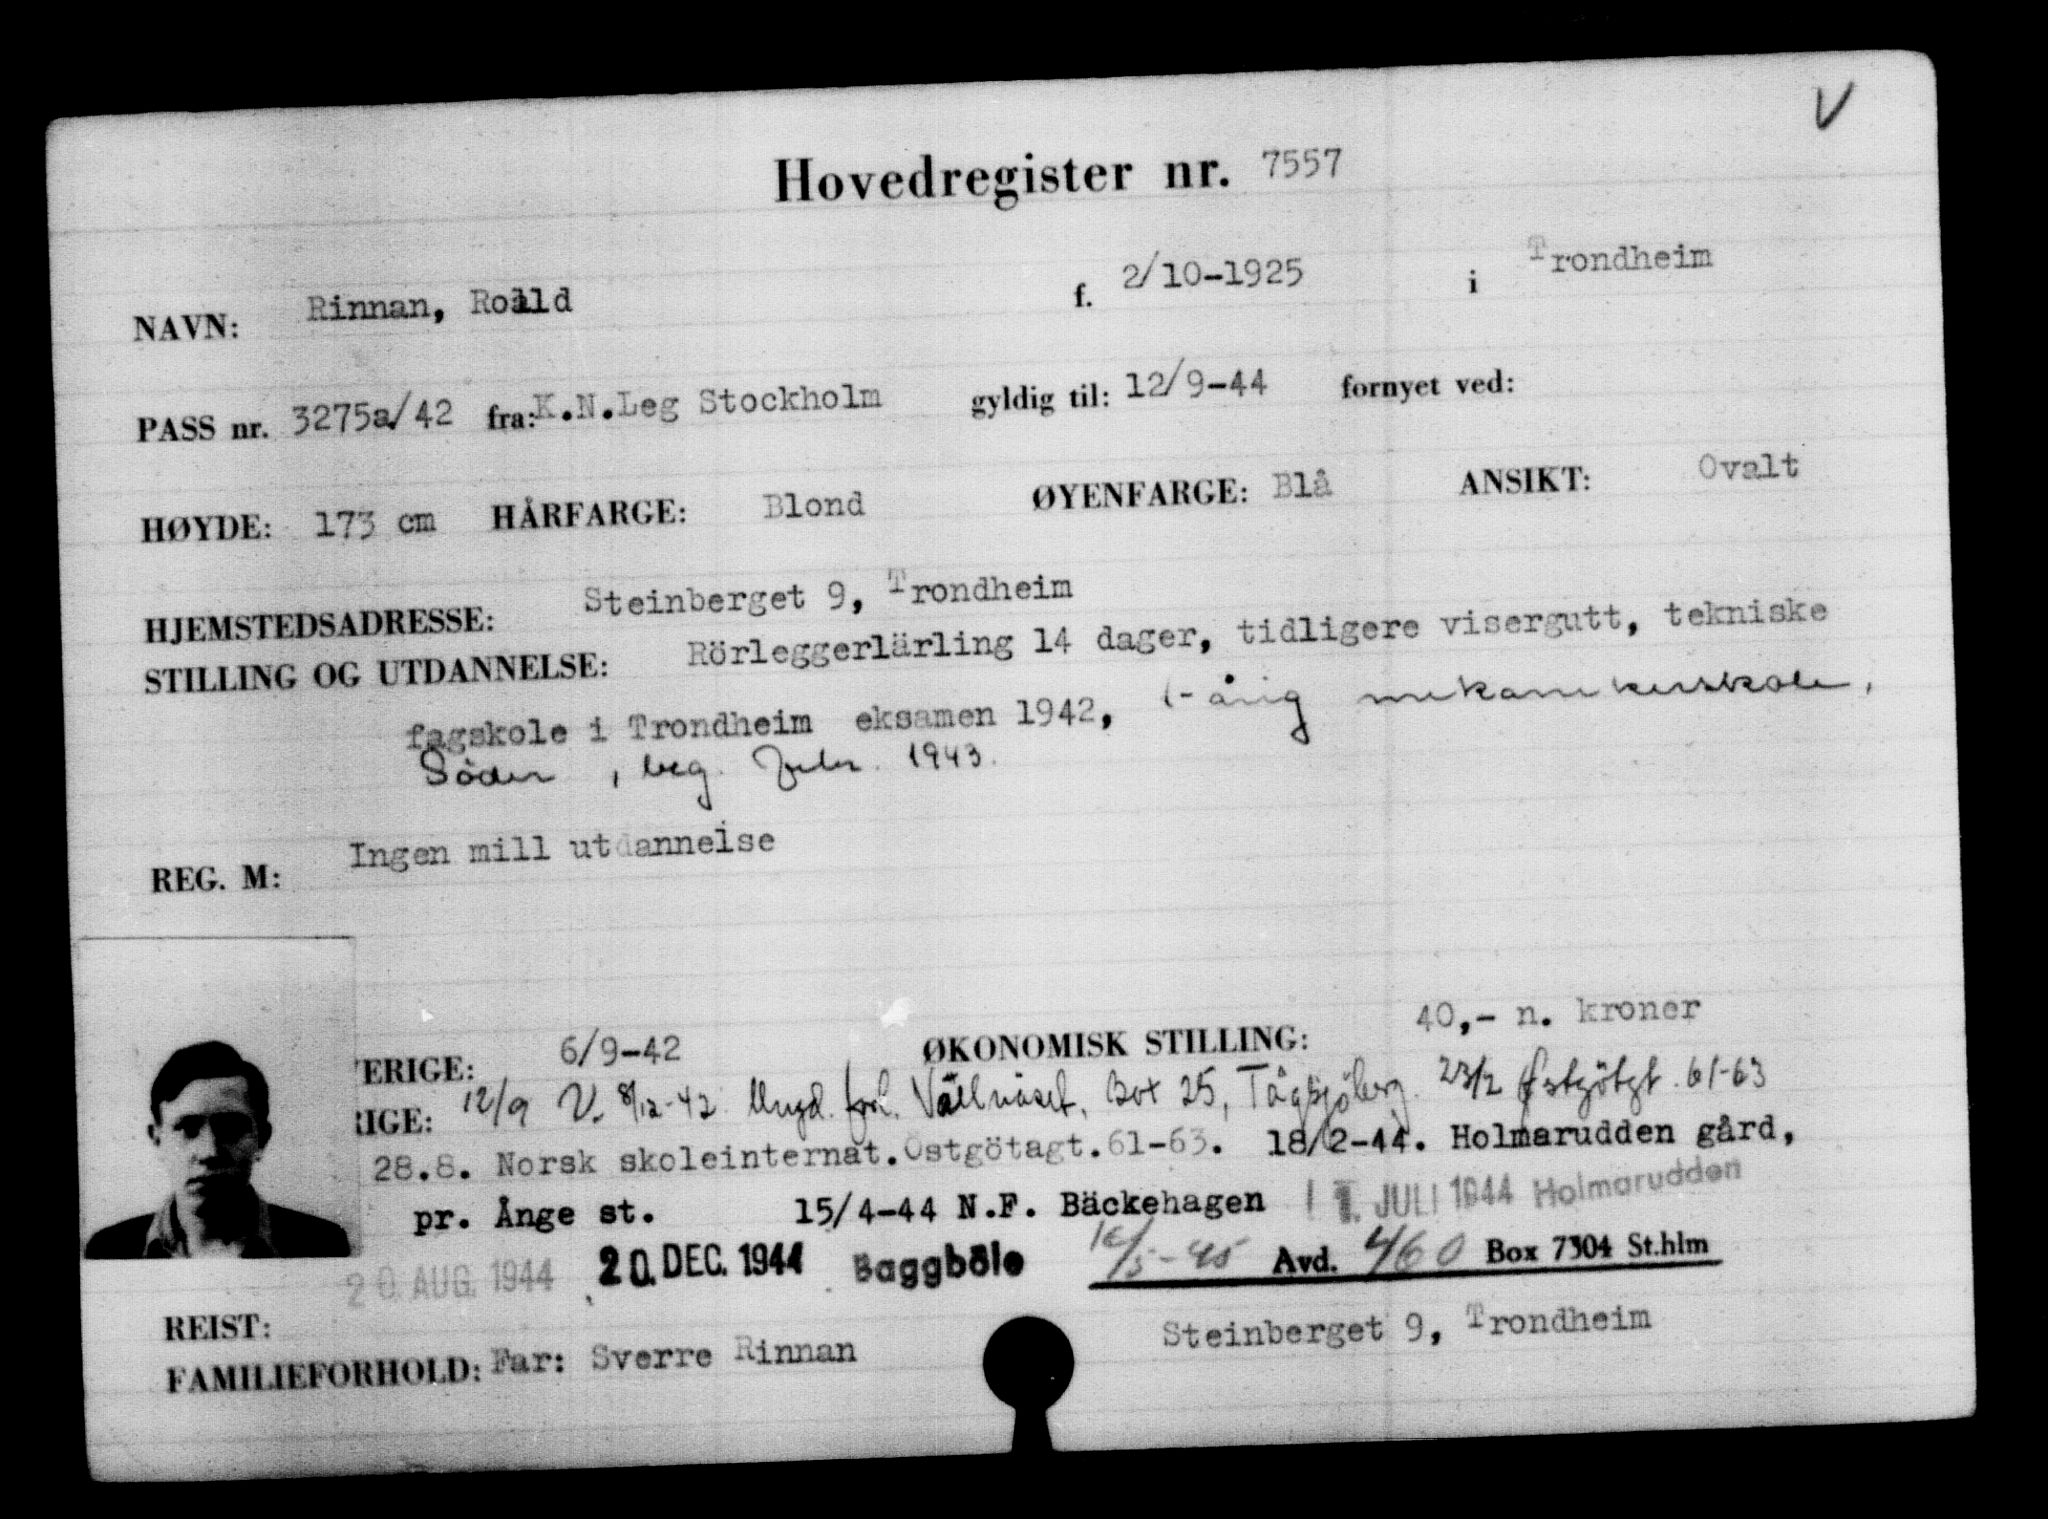 V
Hovedregister nr. 7557
NAVN: Rinnan, Roald f. 2/10-1925 i Trondheim
PASS nr. 3275a/42 fra: K.N.Leg Stockholm gyldig til: 12/9-44 fornyet ved:
HØYDE: 173 cm HÅRFARGE: Blond ØYENFARGE: Blå ANSIKT: Ovalt
HJEMSTEDSADRESSE: Steinberget 9, Trondheim
STILLING OG UTDANNELSE: Rörleggerlärling 14 dager, tidligere visergutt, tekniske
fagskole i Trondheim eksamen 1942, 1-årig mekanikerskole,
Söder, beg. febr. 1943.
REG. M: Ingen mill utdannelse
ERIGE: 6/9-42 ØKONOMISK STILLING: 40,- n. kroner
RIGE: 12/9 V. 8/12-42 Ungd. forl. Vällnäset, Box 25, Tågsjöberg. 23/2 Østgötgt. 61-63
28.8. Norsk skoleinternat. Östgötagt. 61-63. 18/2-44. Holmarudden gård,
pr. Ånge st. 15/4-44 N.F. Bäckehagen 11. JULI 1944 Holmarudden
20 AUG. 1944 20. DEC. 1944 Baggböle 16/5-45 Avd. 460 Box 7304 St.hlm
REIST:
FAMILIEFORHOLD: Far: Sverre Rinnan Steinberget 9, Trondheim